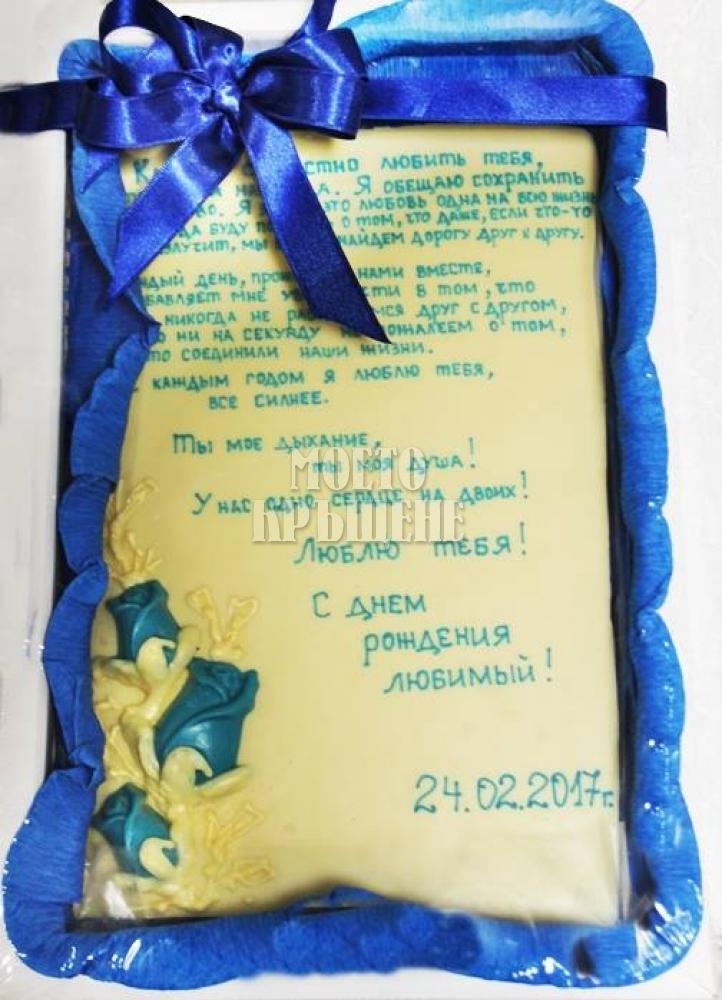 СТНО ЛЮБИТЬ ТЕБЯ,
НА. Я ОБЕЩАЮ СОХРАНИТЬ
ЭТО ЛЮБОВЬ ОДНА НА ВСЮ ЖИЗНЬ
БУДУ О ТОМ, ЧТО ДАЖЕ, ЕСЛИ ЧТО-ТО
ЗЛУЧИТ, МЫ НАЙДЕМ ДОРОГУ ДРУГ К ДРУГУ.
ЖДЫЙ ДЕНЬ, ПРО НАМИ ВМЕСТЕ,
БАВЛЯЕТ МНЕ УВ СТИ В ТОМ, ЧТО
НИКОГДА НЕ РА МСЯ ДРУГ С ДРУГОМ,
НИ НА СЕКУНДУ ПОЖАЛЕЕМ О ТОМ,
ТО СОЕДИНИЛИ НАШИ ЖИЗНИ.
КАЖДЫМ ГОДОМ Я ЛЮБЛЮ ТЕБЯ,
ВСЕ СИЛНЕЕ.
ТЫ МОЕ ДЫХАНИЕ,
ТЫ МОЯ ДУША!
У НАС ОДНО СЕРДЦЕ НА ДВОИХ!
ЛЮБЛЮ ТЕБЯ!
С ДНЕМ
РОЖДЕНИЯ
ЛЮБИМЫЙ!
24.02.2017г.
МОЕТО
КРЪЩЕНЕ